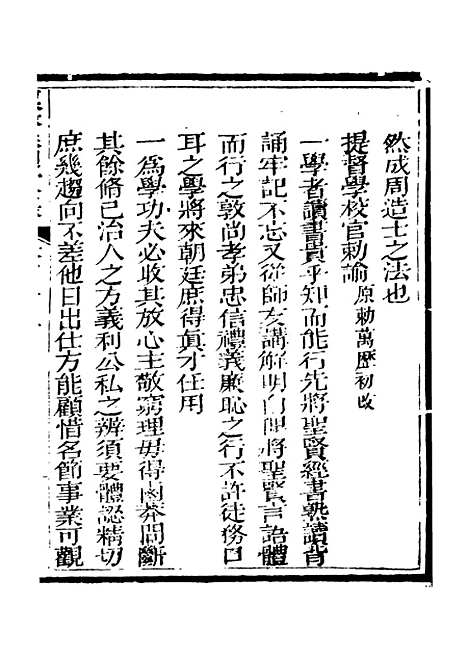 然成周造士之法也
提督學校官勅諭原勅萬歷初改
一學者讀書貴乎知而能行先將聖賢經書熟讀背
誦牢記不忘又從師友講解明白即將聖賢言語體
而行之敦尚孝弟忠信禮義廉恥之行不許徒務口
耳之學將來朝廷庶得眞才任用
一為學功夫必收其放心主敬窮理毋得鹵莽間斷
其餘脩己治人之方義利公私之辨須要體認精切
庶幾趨向不差他日出仕方能顧惜名節事業可觀